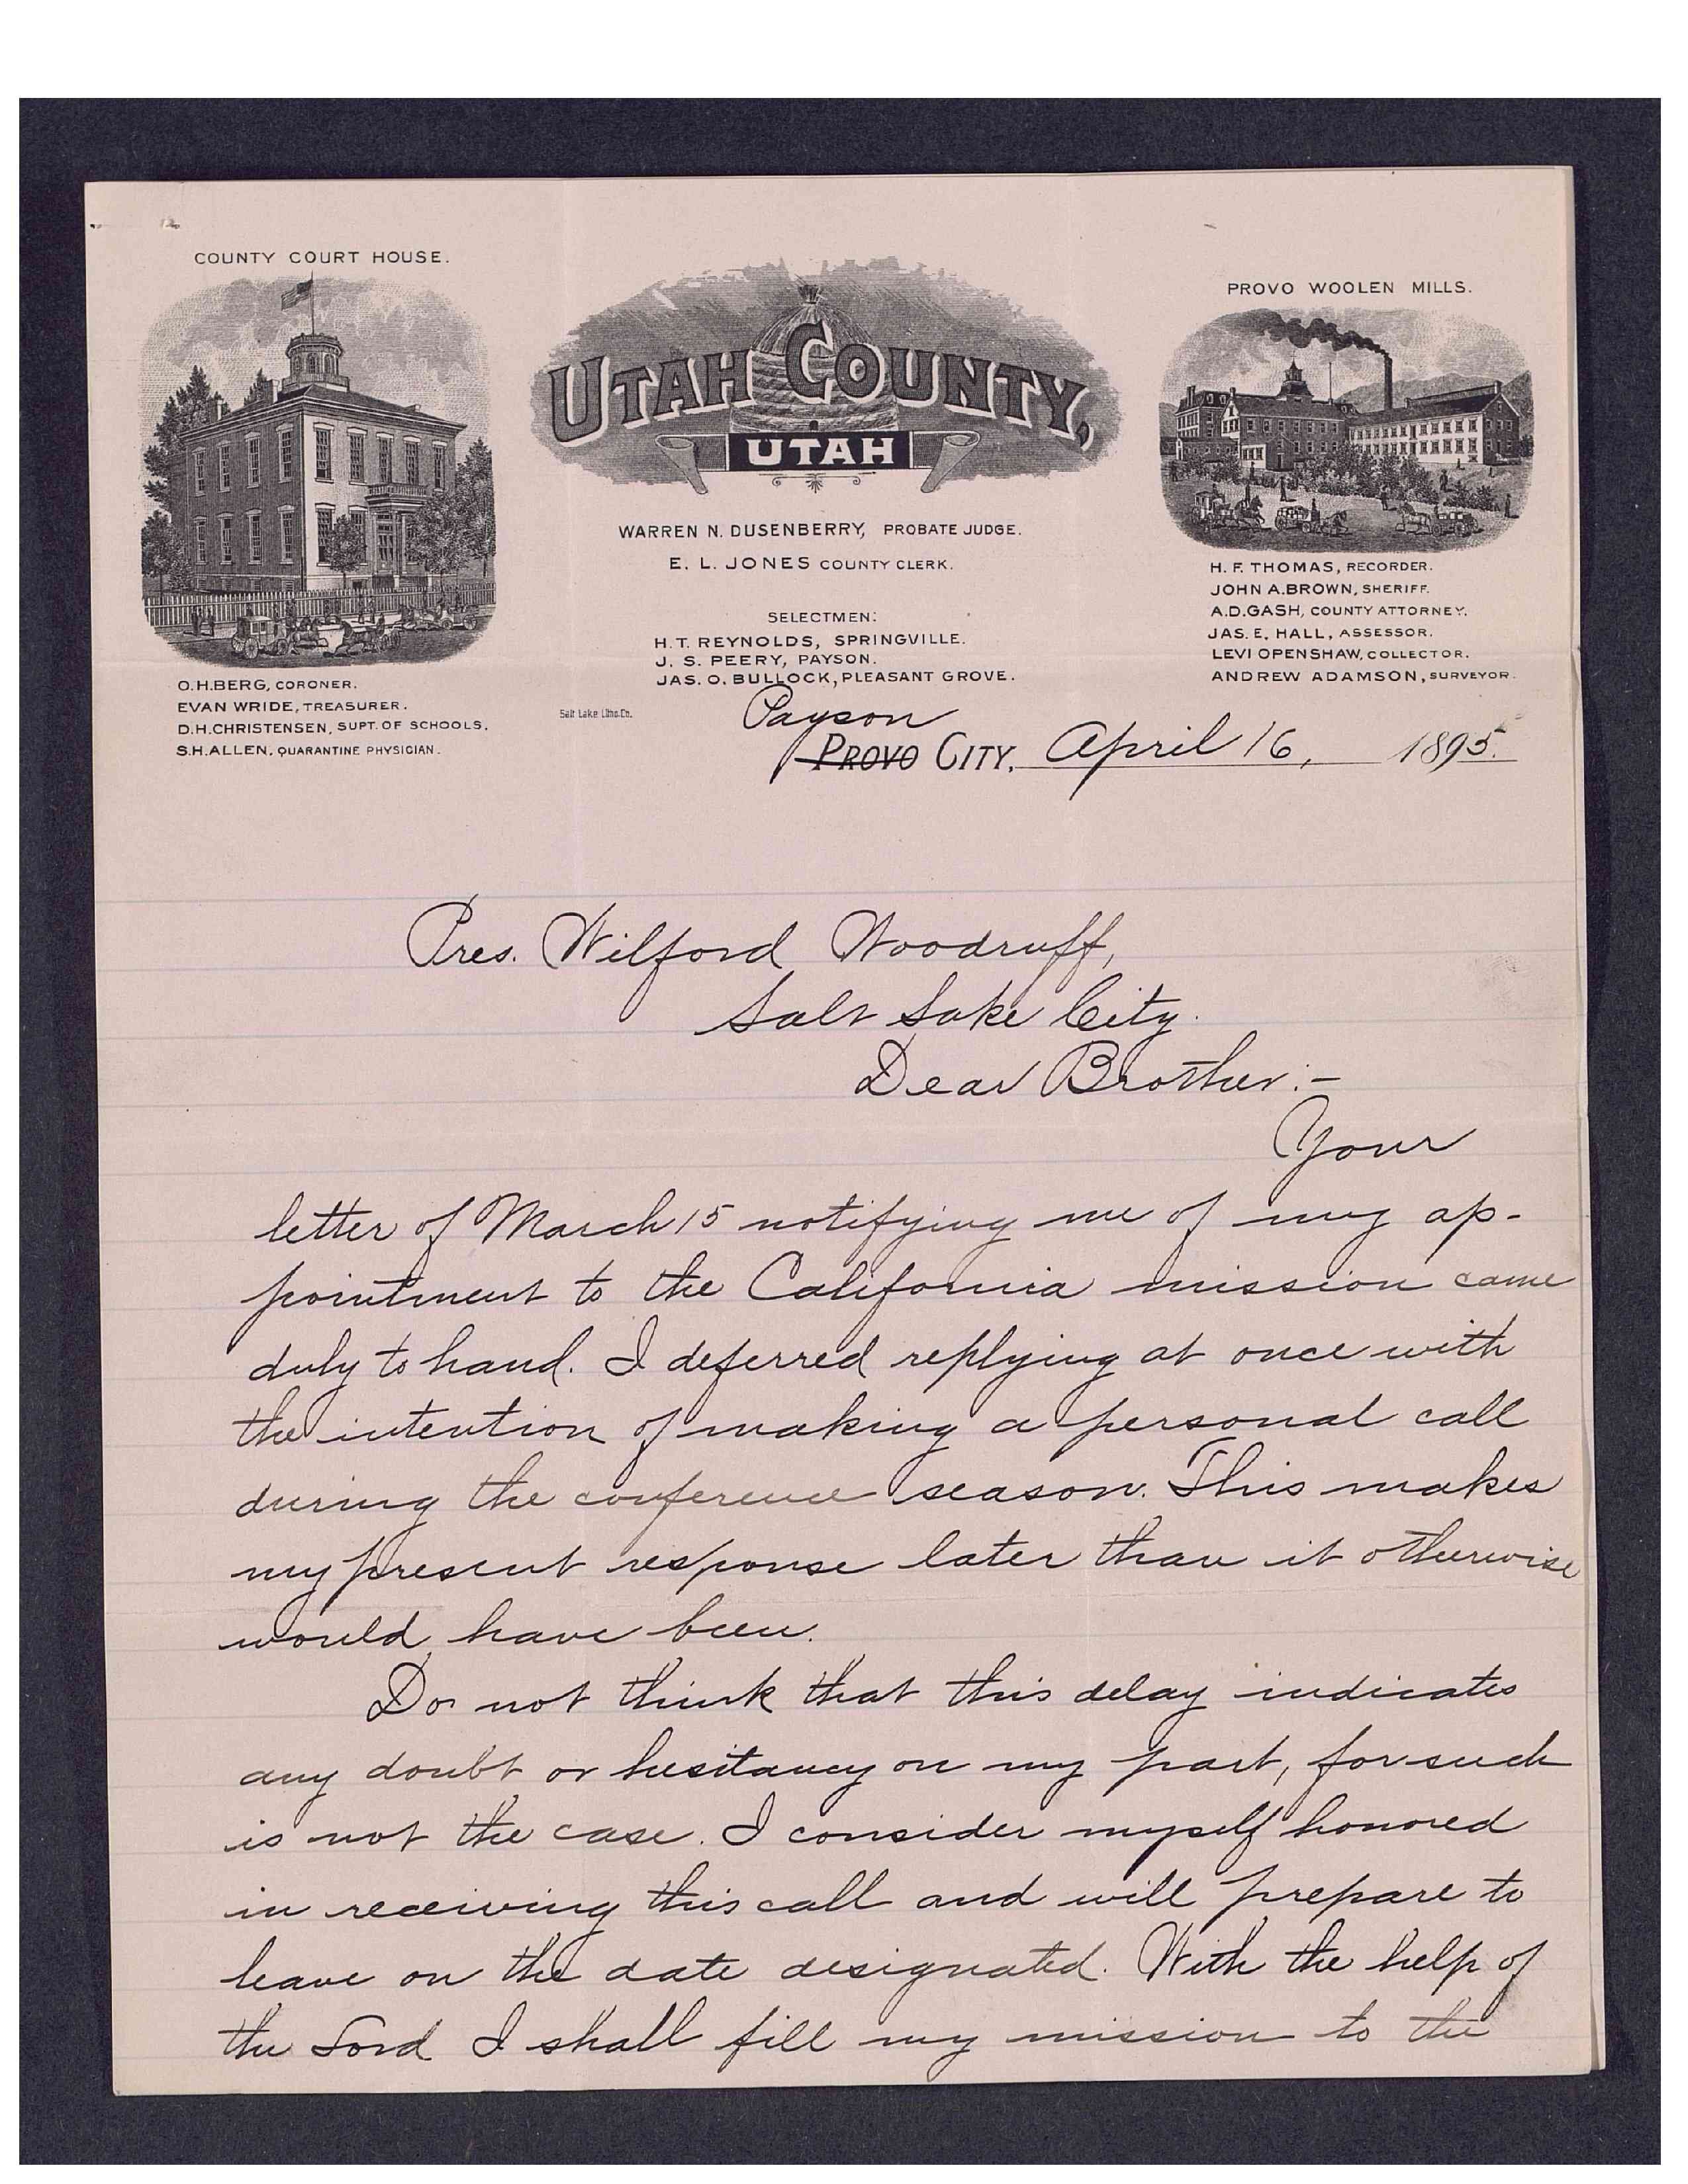 COUNTY COURT HOUSE.
PROVO WOOLEN MILLS.
UTAH COUNTY,
UTAH
WARREN N. DUSENBERRY, PROBATE JUDGE.
E. L. JONES COUNTY CLERK.
SELECTMEN:
H. T. REYNOLDS, SPRINGVILLE.
J. S. PEERY, PAYSON.
JAS. O. BULLOCK, PLEASANT GROVE.
H. F. THOMAS, RECORDER.
JOHN A. BROWN, SHERIFF.
A. D. GASH, COUNTY ATTORNEY.
JAS. E. HALL, ASSESSOR.
LEVI OPENSHAW, COLLECTOR.
ANDREW ADAMSON, SURVEYOR.
O. H. BERG, CORONER.
EVAN WRIDE, TREASURER.
D. H. CHRISTENSEN, SUPT. OF SCHOOLS.
S. H. ALLEN, QUARANTINE PHYSICIAN.
Salt Lake Litho. Co.
Payson
PROVO CITY, April 16, 1895.
Pres. Wilford Woodruff,
Salt Lake City.
Dear Brother:-
Your
letter of March 15 notifying me of my ap-
pointment to the California mission came
duly to hand. I deferred replying at once with
the intention of making a personal call
during the conference season. This makes
my present response later than it otherwise
would have been.
Do not think that this delay indicates
any doubt or hesitancy on my part, for such
is not the case. I consider myself honored
in receiving this call and will prepare to
leave on the date designated. With the help of
the Lord I shall fill my mission to the